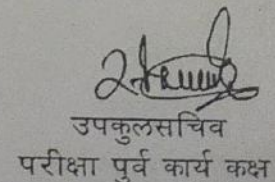 उपकुलसचिव
परीक्षा पुर्व कार्य कक्ष